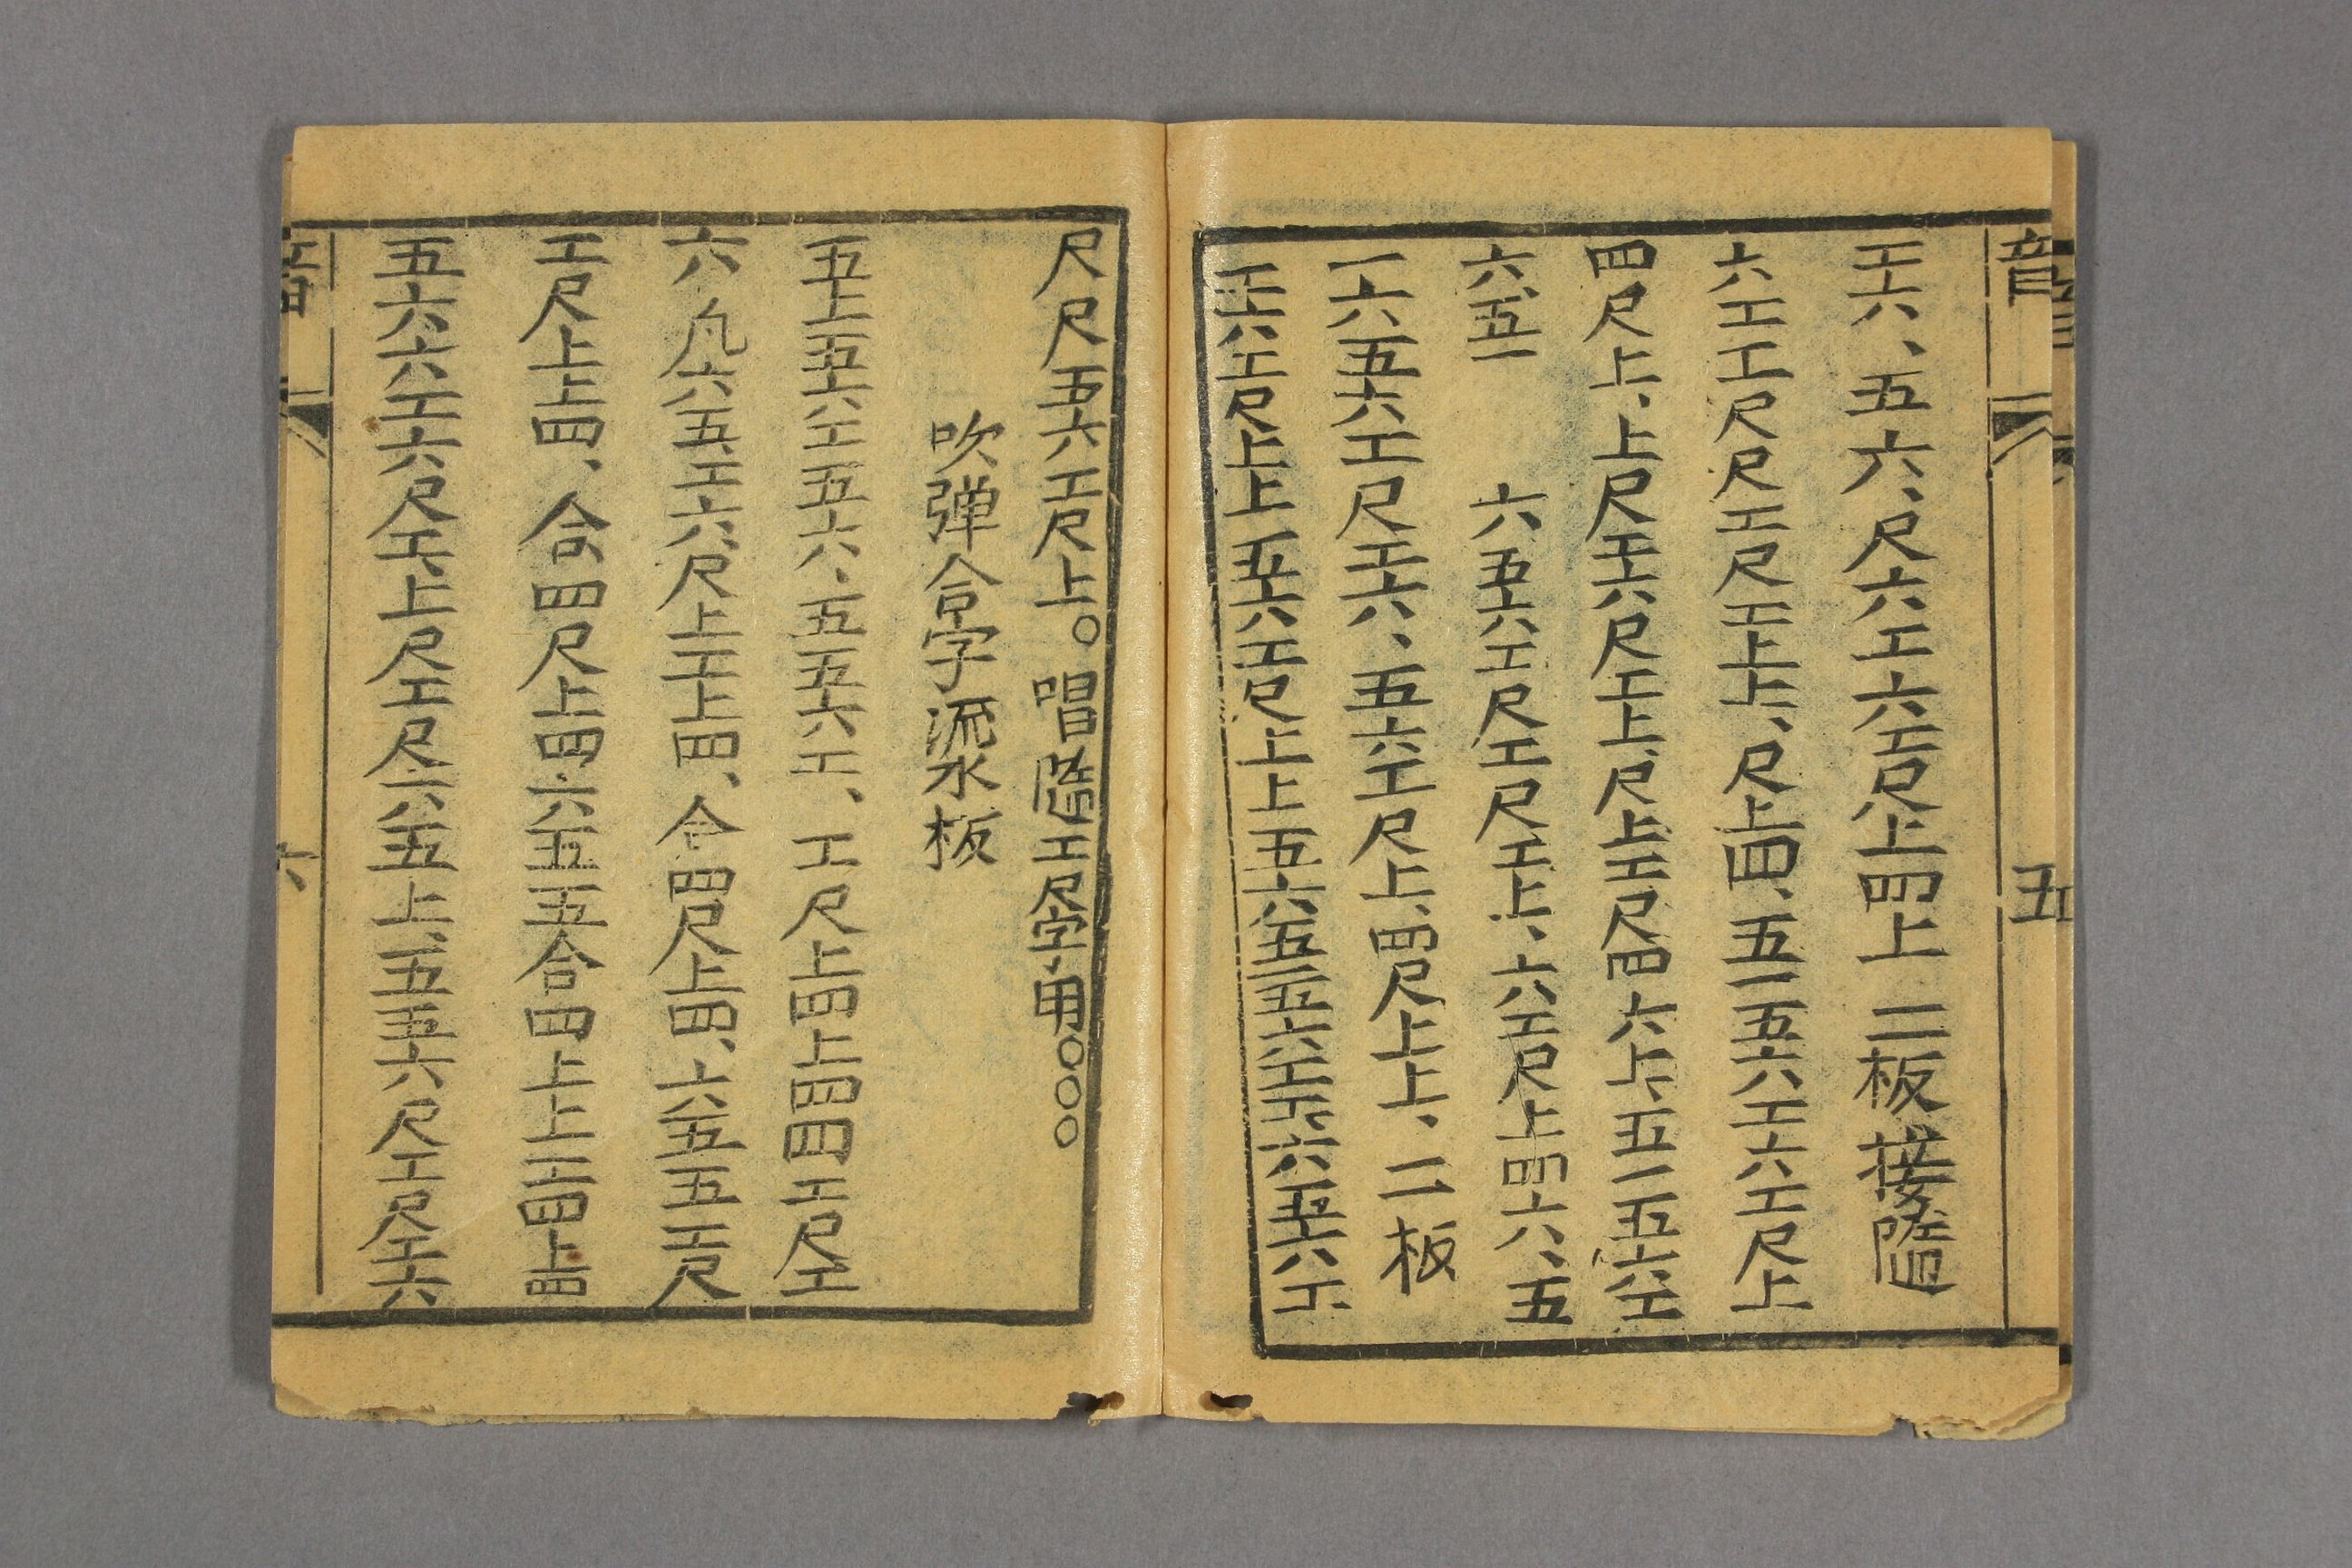 音 五
工六、五六、尺六工六工尺上四上 二板接隨
六工工尺尺工尺工上上、尺上四、五一五六工六工尺上
四尺上、上尺工六尺工上尺上工尺四六上、五一五六工
六五一 六五六工尺工尺工上、六工尺上四六、五
一六五六工尺工六、五六工尺上、四尺上上、二板
工六工尺上上五六工尺上上五六五一五六工工六六五六工
尺尺五六工尺上。唱隨工尺字、用〇〇〇
吹弹合字流水板
五上五六工五六、五五六工、工尺上四上四四工尺工
六凡六五工六、尺上工上四、合四尺上四、六五五工尺
工尺上上四、合四尺上四六五五合四上上工四上四
五六六工六尺工、上尺工尺六五上、五五六尺工尺工六
音 六